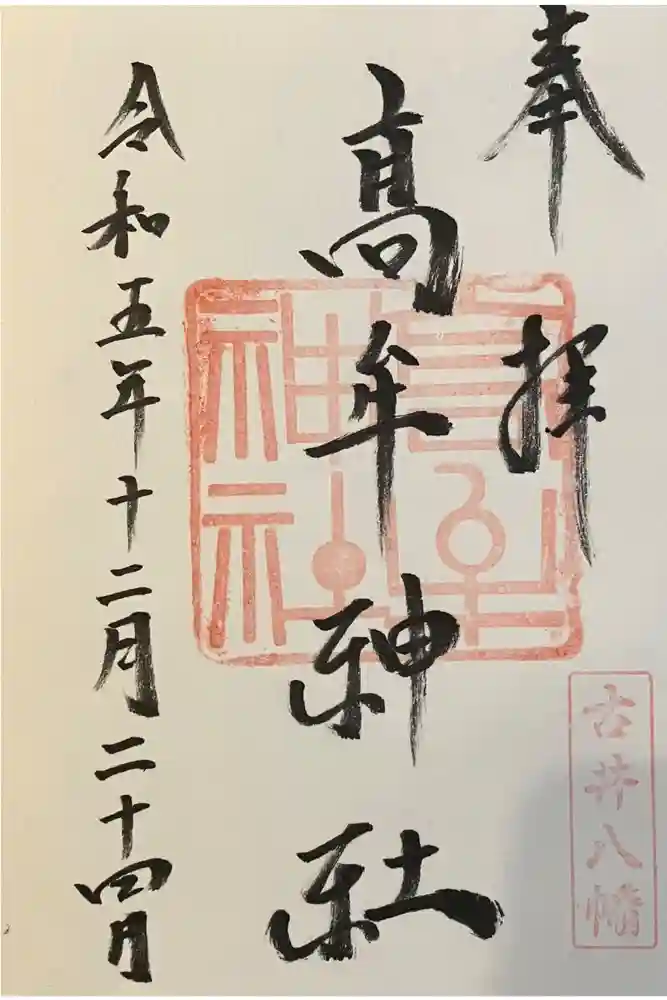 奉拝
古井八幡
高牟神社
高牟神社
令和五年十二月二十四日